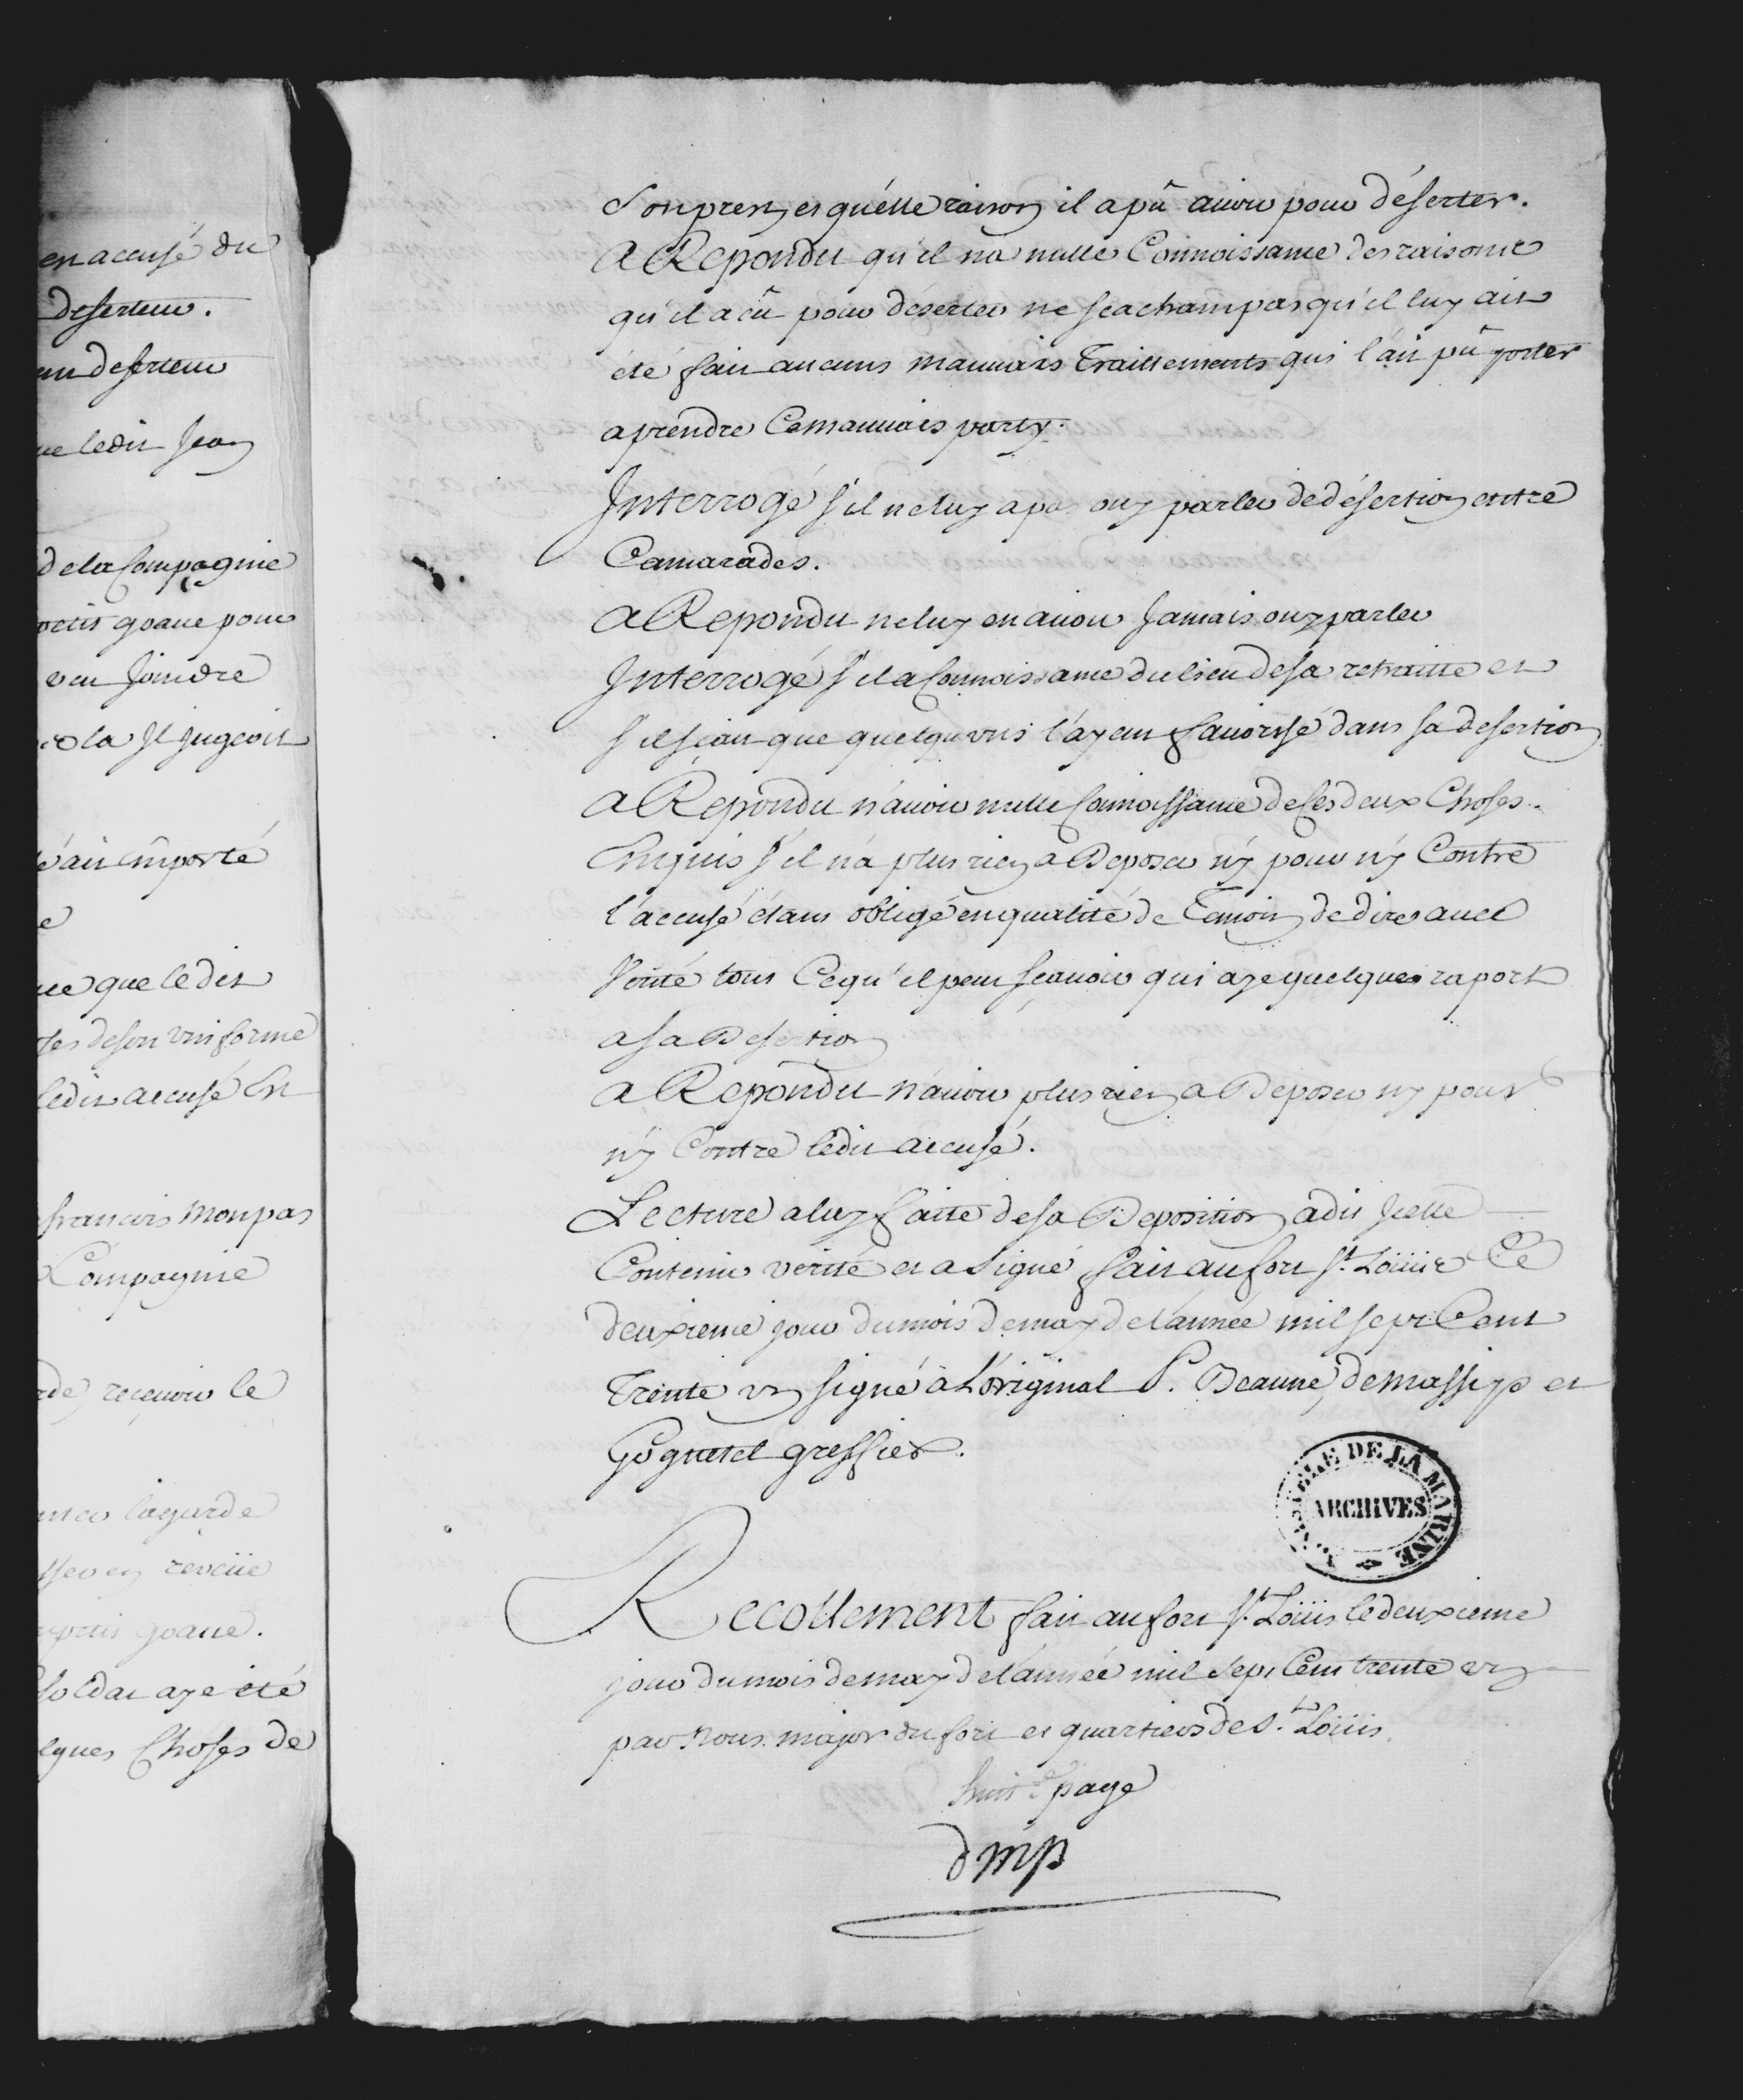 en accusé du
deserteur.
un deserteur
ue ledit Jean
de la Compagnie
petit goave pour
veu Joindre
cela Il jugeoit
é ait emporté
e
ue que ledit
tes de son uniforme
ledit accusé En
francois Monpas
Compagnie
rde, recevoir le
nter la garde
reveüe
petit goave.
soldat aye été
lques Choses de
Son prest, et qu'elle raison il a pû avoir pour déserter.
A Repondu qu'il na nulle Connoissance des raisons
qu'il a eû pour déserter ne scachant pas qu'il luy ait
été fait aucuns mauvais Traittements qui l'ait pû porter
a prendre Ce mauvais party.
Interrogé s'il ne luy a pas ouy parler de désertion entre
Camarades.
A Repondu ne luy en avoir Jamais ouy parler
Interrogé s'il a Connoissance du lieu de sa retraitte et
s'il scait que quelqu'uns l'ayent favorisé dans sa desertion
A Repondu n'avoir nulle Connoissance de Ces deux Choses.
Enquis s'il n'a plus rien a Deposer n'y pour n'y Contre
l'accusé étant obligé en qualité de Temoin de dire avec
Verité tout Ce qu'il peut scavoir qui aye quelques raport
a sa Desertion
A Repondu n'avoir plus rien a Deposer ny pour
n'y Contre ledit accusé.
Lecture a luy faite de sa Deposition a dit Icelle
Contenir verité et a Signé fait au fort St. Loüis Ce
deuxieme jour du mois de may de l'année mil sept Cent
Trente un signé à L'original P. Deaune, de massip et
Gognetel greffier.
Recollement fait au fort St. Loüis le deuxieme
jour du mois de may de l'année mil Sept Cent trente un
par Nous major du fort et quartiers de St. Loüis.
huit.e page
dmp
DE LA MARINE
ARCHIVES